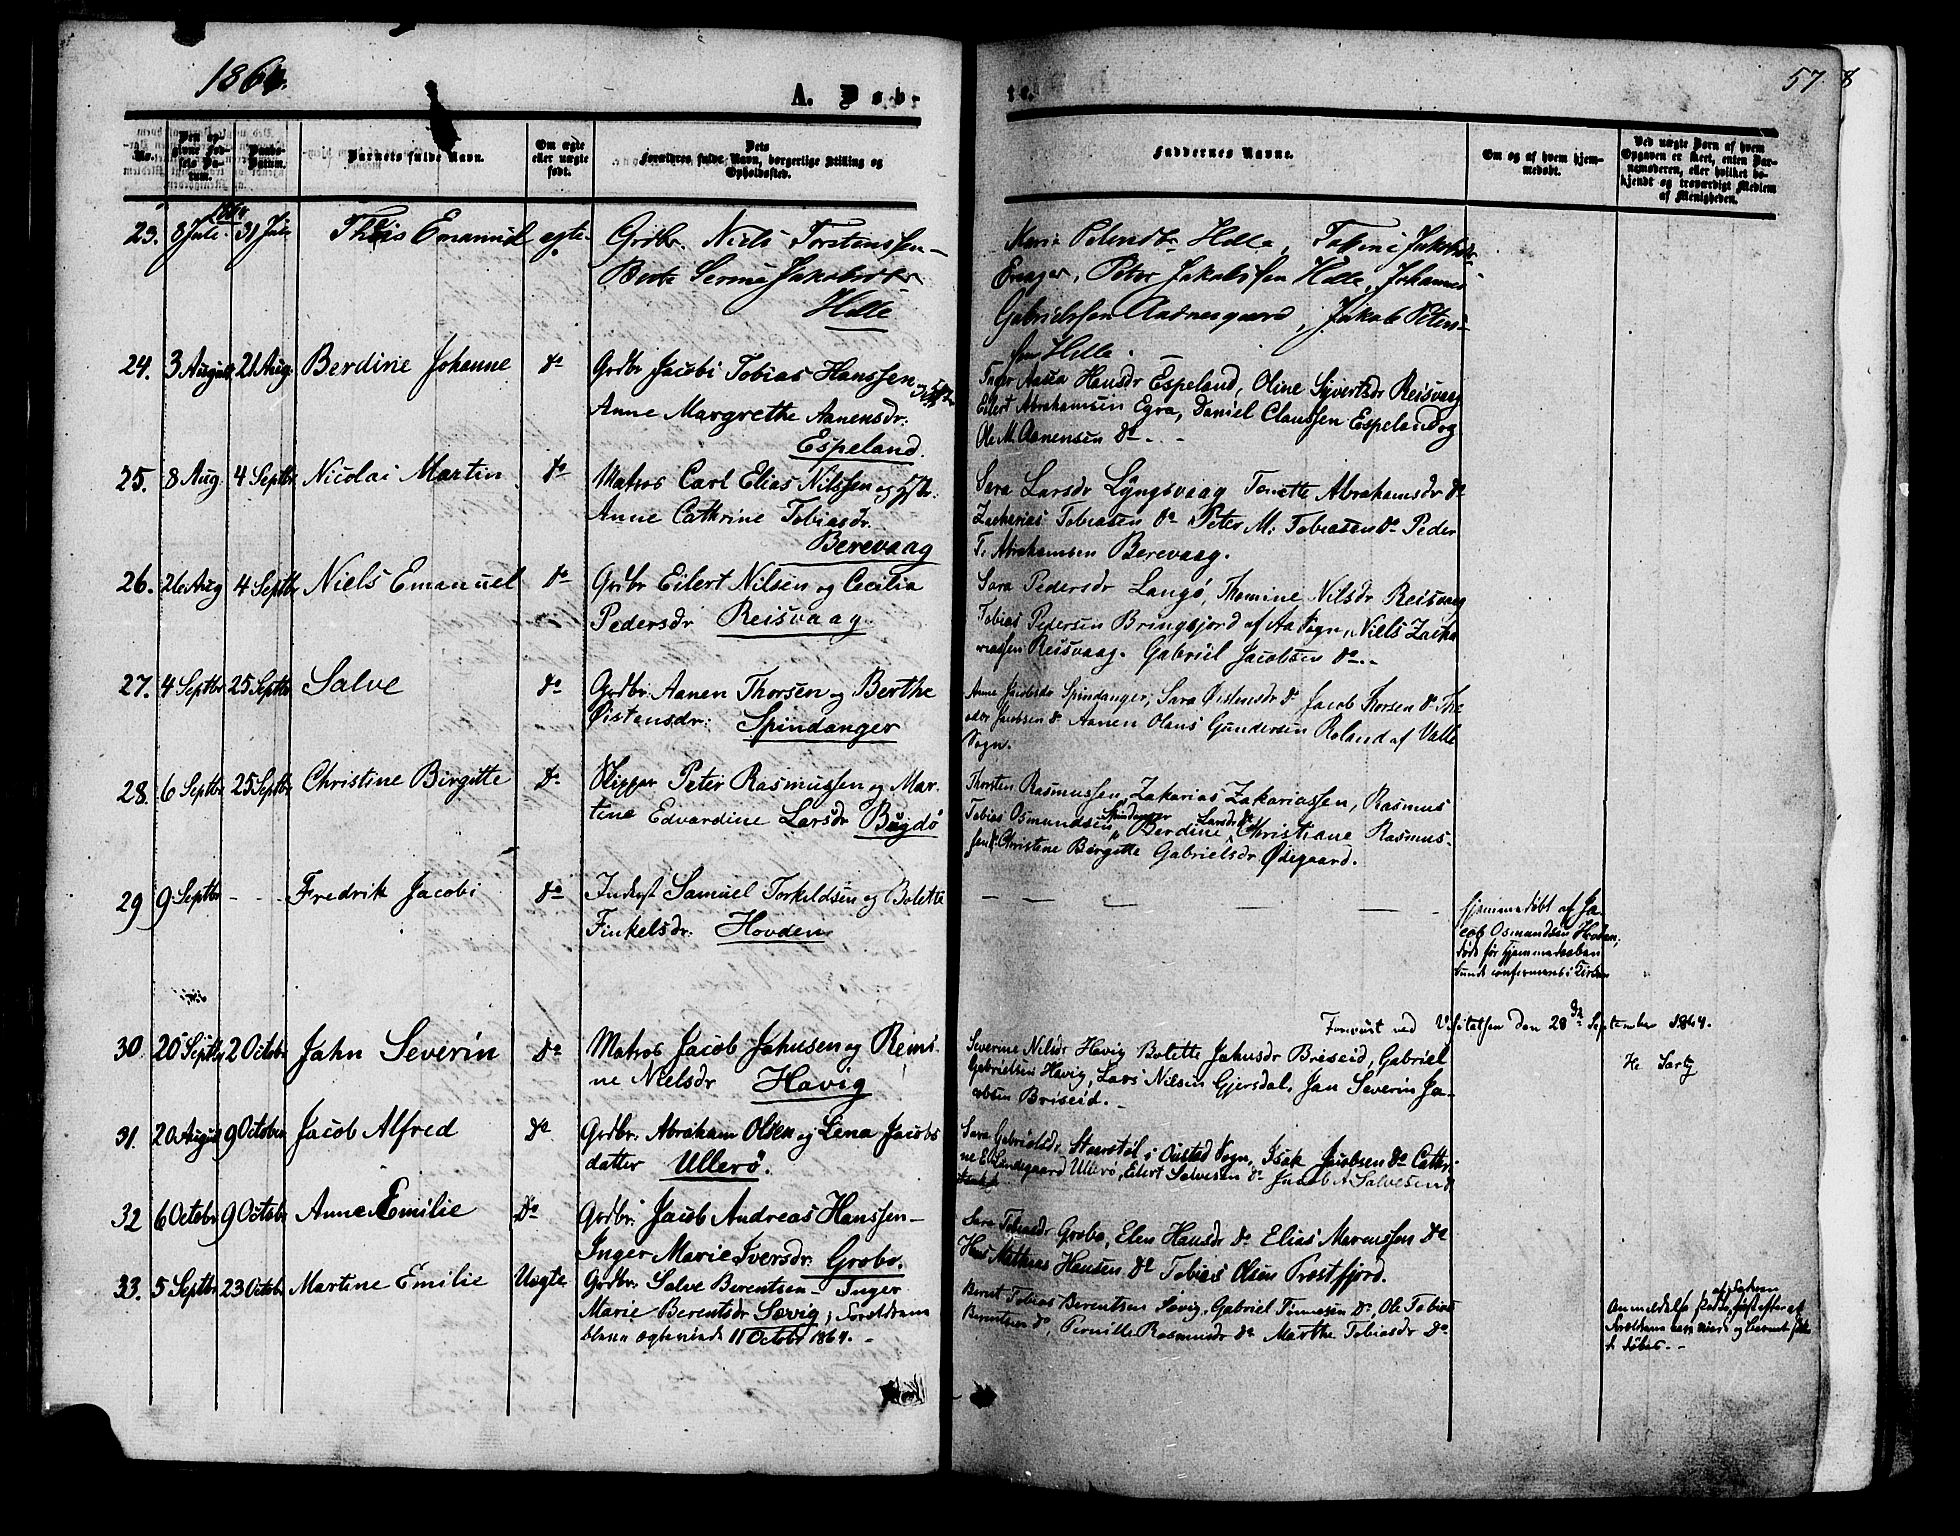 1864.
A. Døb-
te.
57.
No.
Den op-
givne Fød-
sels Da-
tum.
Daabs-
Datum.
Barnets fulde Navn.
Om ægte
eller uægte
født.
Dets
Forældres fulde Navn, borgerlige Stilling og
Opholdssted.
Faddernes Navne.
Om og af hvem hjem-
medøbt.
Ved uægte Børn af hvem
Opgaven er skeet, enten Bar-
nemoderen, eller hvilket be-
kjendt og troværdigt Medlem
af Menigheden.
1864
23. 8 Juli 31 Juli Emanuel egte Grdbr. Niels Torstenssen
Berte Serine Jakobsdtr
Helle
Marie Petersdtr Helle, Jakobsdtr
Peter Jakobssen Helle, Johannes
Gabrielssen Jakob Peters-
sen Helle.
24. 3 August 21 Aug. Berdine Johanne do Grdbr Jacobi Tobias Hanssen
Anne Margrethe Aanensdr:
Espeland.
Inger Aasea Hansdr Espeland, Oline Syvertsdr Reisvaag
Eilert Abrahamsen Egra, Daniel Claussen Espeland og
Ole M. Aanensen do. -
25. 8 Aug 4 Septbr Nicolai Martin do Matros Carl Elias Nilssen og Hstr:
Anne Cathrine Tobiasdr.
Berevaag
Sara Larsdr Lyngsvaag Tonette Abrahamsdr do
Zacharias Tobiasen do Peter M. Tobiasen do Peder
T. Abrahamsen Berevaag.
26. 26 Aug 4 Septbr Niels Emanuel do Grdbr Eilert Nilsen og Cecilia
Pedersdr Reisvaag
Sara Pedersdr Langø, Thomine Nilsdr Reisvaag
Tobias Pedersen Bringsjord af Aa Sogn, Niels Zacha
riassen Reisvaag. Gabriel Jacobsen do.-
27. 4 Septbr 25 Septbr Salve do Grdbr: Aanen Thorsen og Berthe
Øistensdr: Spindanger
Anne Jacobsdr Spindanger, Sara Øistensdr do Jacob Thorsen do The
odor Jacobsen do Aanen Olaus Gundersen Roland af Valle
Sogn.
28. 6 Septbr 25 Septbr Christine Birgitte do Skipper Peter Rasmussen og Mar-
tine Edvardine Larsdr Bugdø
Thorsten Rasmussen, Zakarias Zakariassen, Rasmus
Tobias Osmundsen Spindanger, Berdine Larsdr do Christiane Rasmus-
sen do Christine Birgitte Gabrielsdr Ødegaard.
29 9 Septbr - - - Fredrik Jacobi do Inderst Samuel Torkeldsen og Bolette
Finkelsdr: Hovden
Hjemmedøbt af Ja-
cob Osmundsen Hovden,
døde før Hjemmedaaben
kunde confirmeres i Kirken
Foreviist ved Visitatsen den 28de September 1864.
30. 20 Septbr 2 Octobr Jahn Severin do Matros Jacob Jahnsen og Remi-
ne Nielsdr Havig
Severine Nilsdr Havig Bolette Jahnsdr Briseid, Gabriel
Gabrielsen Havig, Lars Nilsen Gjersdal, Jan Severin Ja-
cobsen Briseid. -
31. 20 August 9 October Jacob Alfred do Grdbr: Abraham Olsen og Lena Jacobs
datter Ullerø.
Sara Gabrielsdr. Staerstøl i Ousted Sogn, Isak Jacobsen do Cathri-
ne E. Lindegaard Ullerø, Eilert Salvesen do Jacob A Salvesen do
32 6 Octobr 9 Octobr Anne Emilie do Grdbr: Jacob Andreas Hanssen -
Inger Marie Iversdr: Grobo.
Sara Tobiasdr Grobo, Elen Hansdr do Elias Marenssen do
Hans Mathias Hansen do Tobias Olsen Prestfjord.
33. 5 Septbr 23 Octobr Martine Emilie Uægte Grdbr: Salve Berentsen - Inger
Marie Berentsdr Søvig; Forældrene
bleve ægteviede 11 Octobr 1864. -
Bernt Tobias Berentsen Søvig, Gabriel Tønnesen do, Ole Tobias
Berentsen do, Pernille Rasmusdr do Marthe Tobiasdr do
Anmeldelse skede først efter at
Forældrene vare viede og Barnet
døbt. -